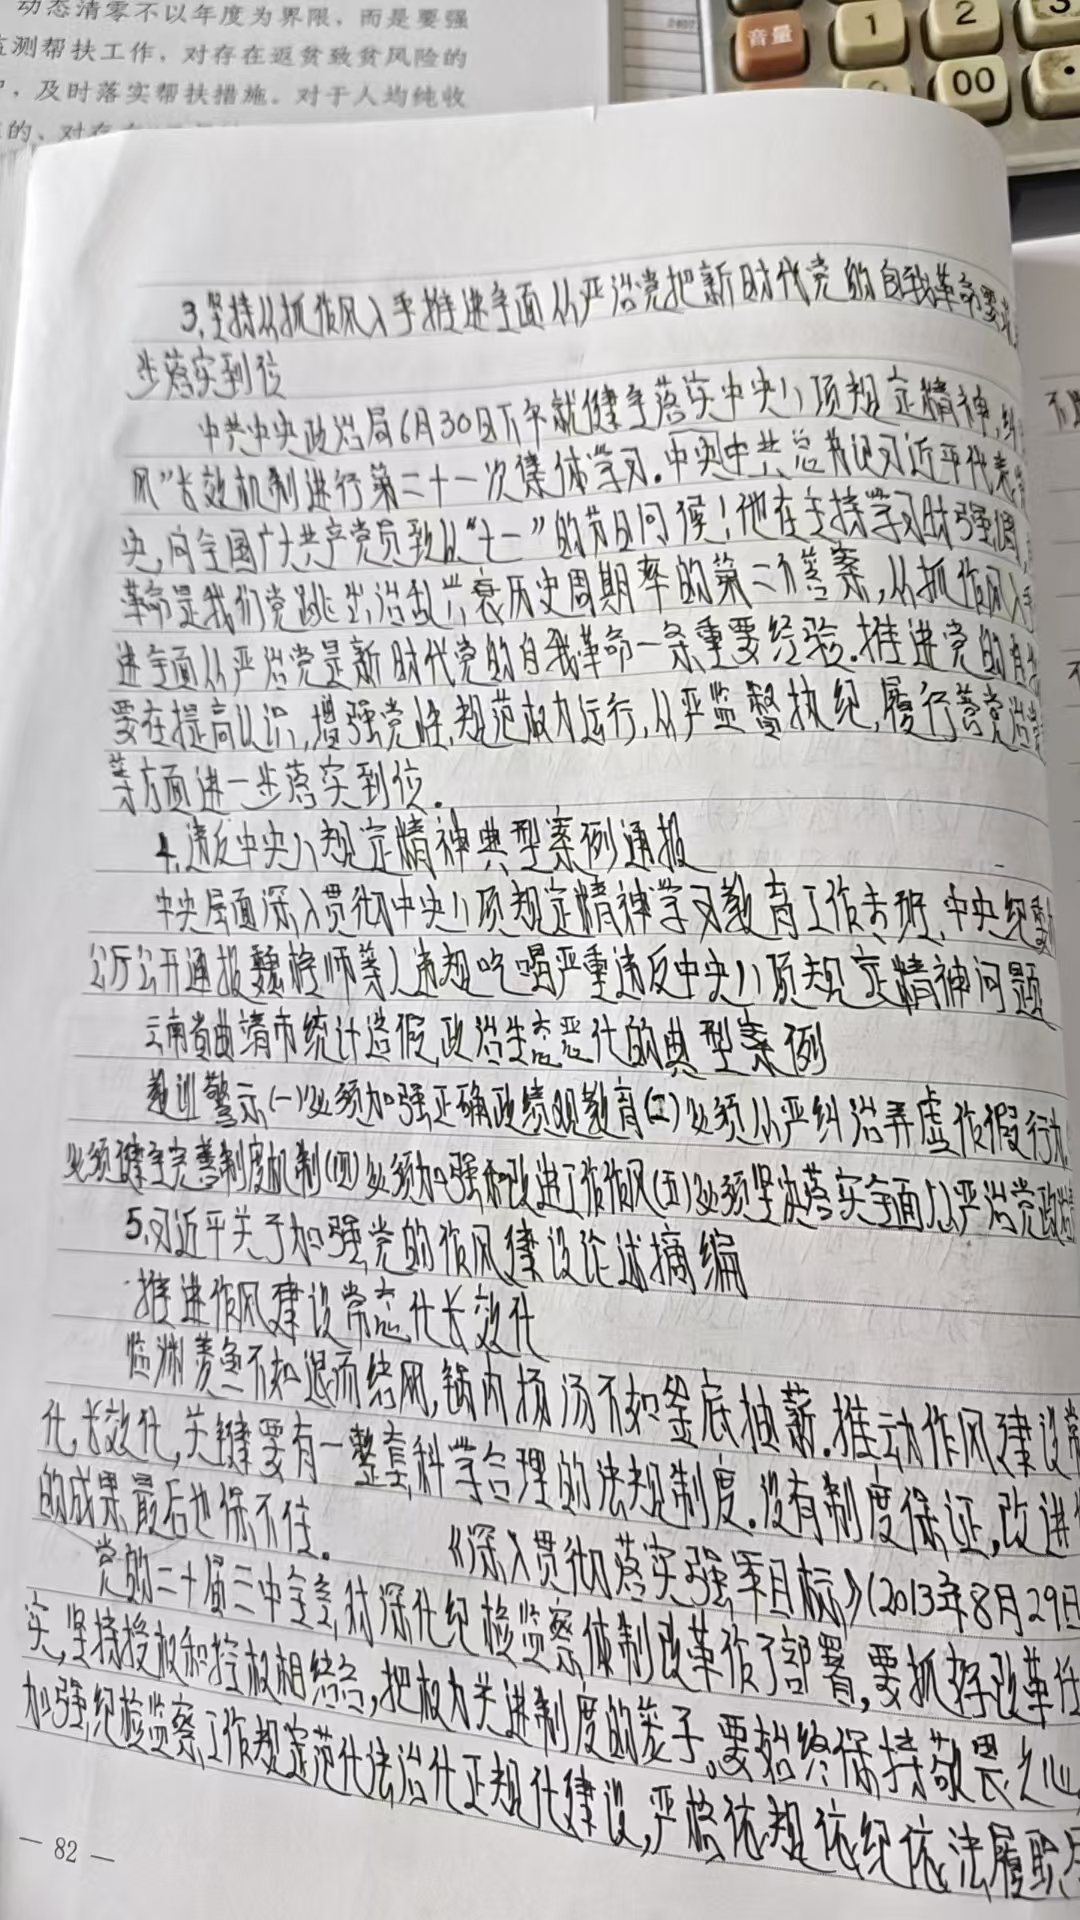 动态清零不以年度为界限，而是要强
监测帮扶工作，对存在返贫致贫风险的
，及时落实帮扶措施。对于人均纯收
的、对存
音量
1
2
3
00
3.坚持从抓作风入手推进全面从严治党把新时代党的自我革命要求
步落实到位
中共中央政治局6月30日下午就健全落实中央八项规定精神,纠
风"长效机制进行第二十一次集体学习.中央中共总书记习近平代表
央,向全国广大共产党员致以“七一”的节日问候!他在主持学习时强调,
革命是我们党跳出治乱兴衰历史周期率的第二个答案,从抓作风入手
进全面从严治党是新时代党的自我革命一条重要经验.推进党的自
要在提高认识,增强党性,规范权力运行,从严监督执纪,履行管党治党
等方面进一步落实到位.
4.违反中央八规定精神典型案例通报
中央层面深入贯彻中央八项规定精神学习教育工作专班、中央纪委
公厅公开通报 师等人违规吃喝严重违反中央八项规定精神问题
云南省曲靖市统计造假,政治生态恶化的典型案例
教训警示(一)必须加强正确政绩观教育(二)必须从严纠治弄虚作假行为
必须健全完善制度机制(四)必须加强和改进工作作风(五)必须坚决落实全面从严治党政治
5.习近平关于加强党的作风建设论述摘编
·推进作风建设常态化长效化
临渊羡鱼不如退而结网,锅内扬汤不如釜底抽薪.推动作风建设常
化,长效化,关键要有一整套科学合理的法规制度.没有制度保证,改进
的成果最后也保不住.
《深入贯彻落实强军目标》(2013年8月29日
党的二十届三中全会,对深化纪检监察体制改革作了部署,要抓好改革任
实,坚持授权和控权相结合,把权力关进制度的笼子。要始终保持敬畏之心,
加强纪检监察工作规定范化法治化正规化建设,严格依规依纪依法履职尽
— 82 —